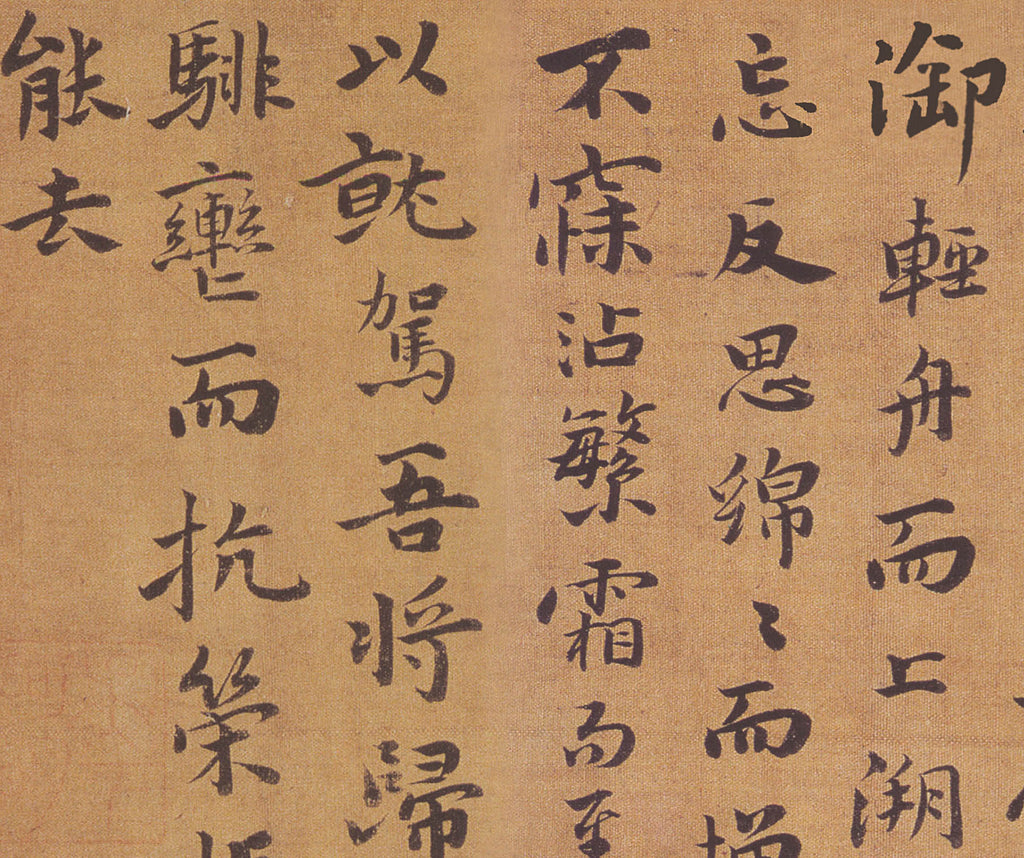 御輕舟而上溯
忘反思綿々而增
不寐沾繁霜而至
以就駕吾将歸
騑轡而抗策
能去